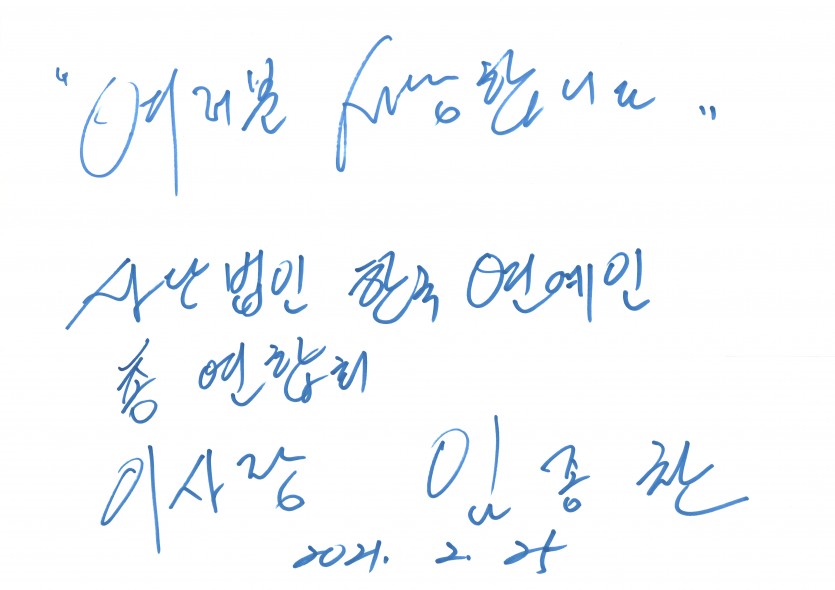 "여러분 사랑합니다"
사단법인 한국 연예인
총 연합회
이사장 임종찬
2021. 2. 25